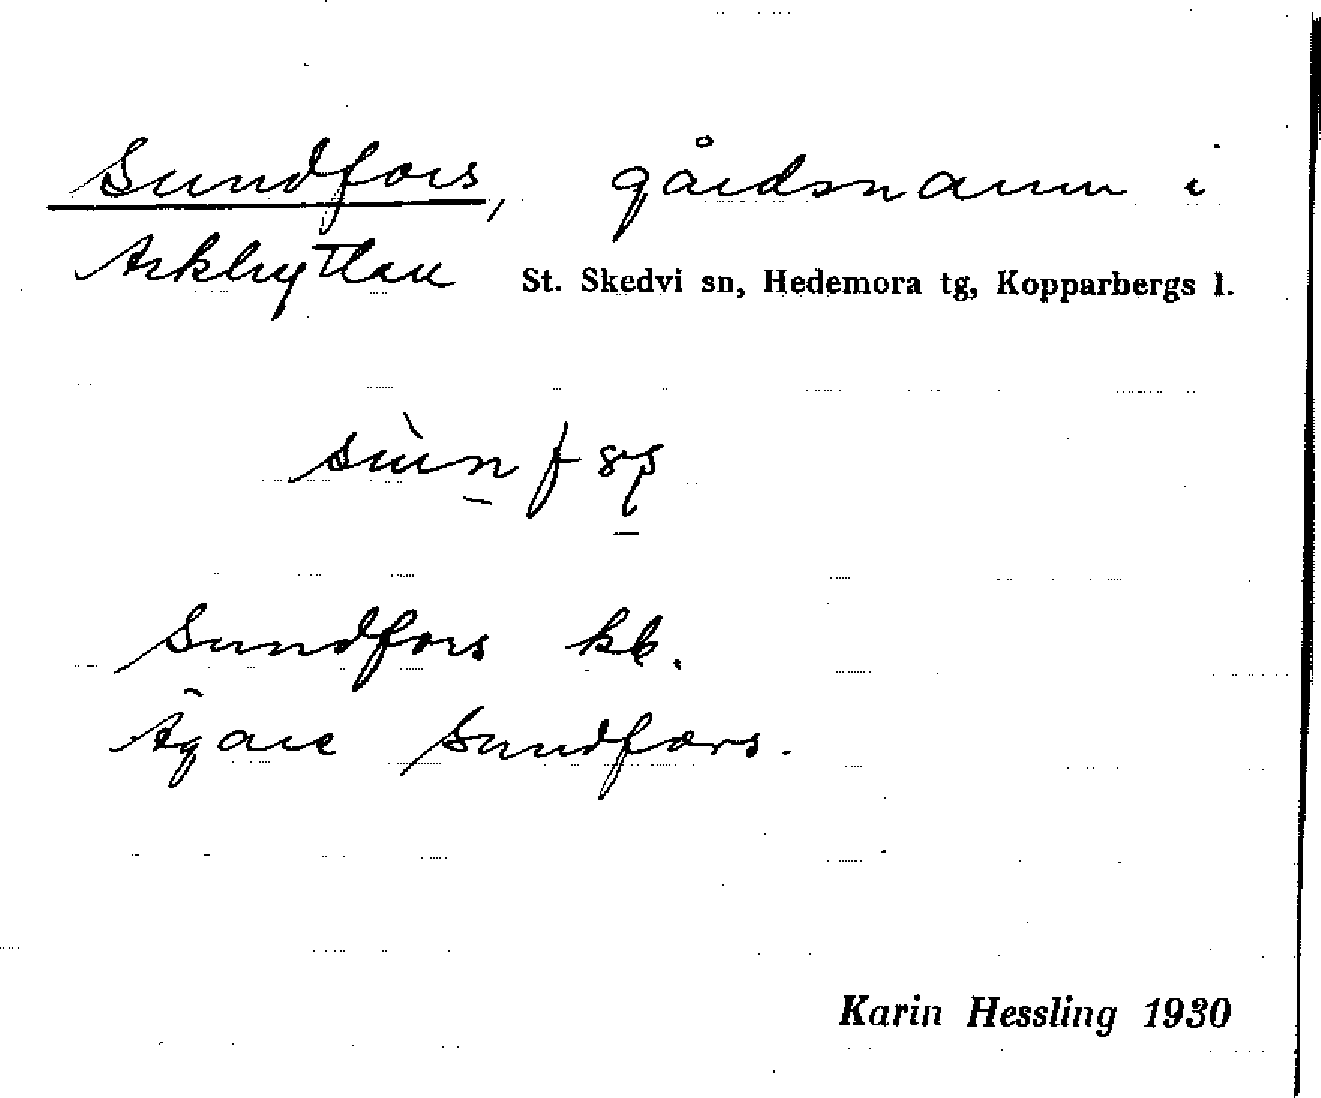 Sundfors, gårdsnamn i
Arkhyttan St. Skedvi sn, Hedemora tg, Kopparbergs l.
Sundfors kb.
Ägare Sundfors.
Karin Hessling 1930